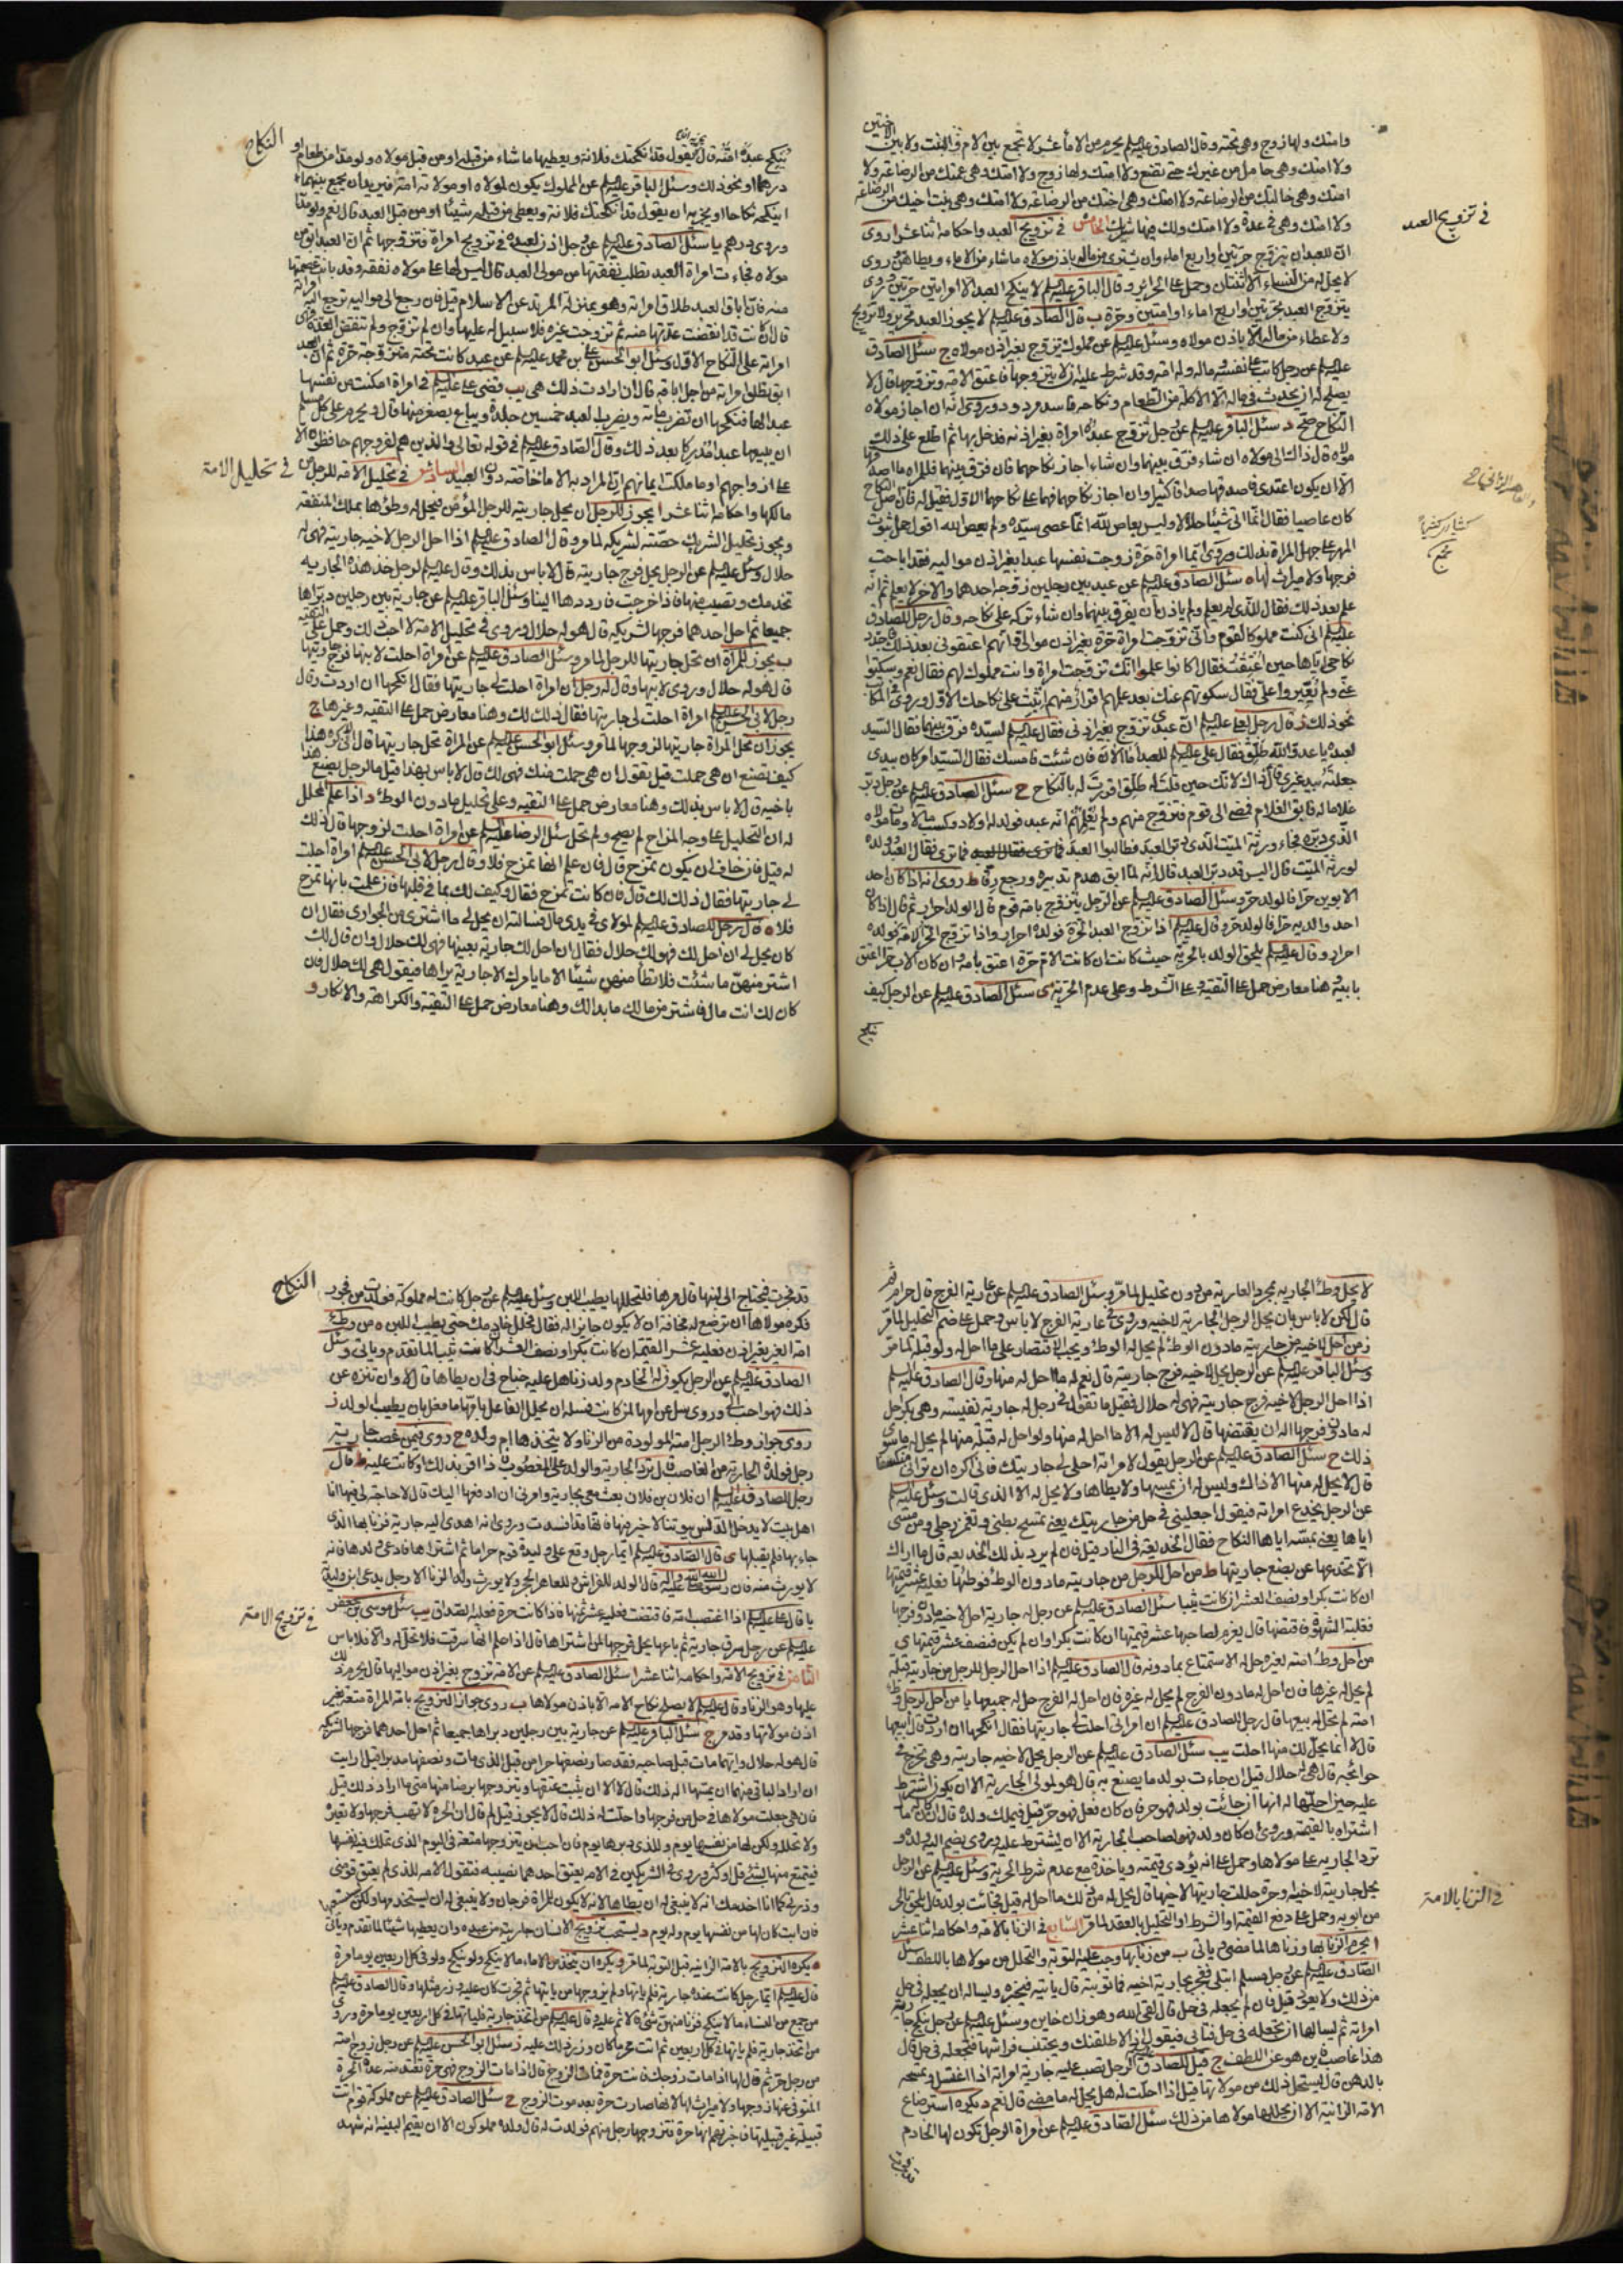 وامتك ولها زوج وهي تحته وقال الصادق عليه السلم يحرم من الاماء عشر لا تجمع بين الام والبنت ولا بين الاختين
ولا امتك وهي حامل من غيرك حتى تضع ولا امتك ولها زوج ولا امتك وهي عمتك من الرضاعة ولا
امتك وهي خالتك من الرضاعة ولا امتك وهي اختك من الرضاعة ولا امتك وهي بنت اخيك من الرضاعة
ولا امتك وهي في عدة ولا امتك ولك فيها شريك الخامس في تزويج العبد واحكامه اثنا عشر ا روى
في تزويج العبد
ان للعبد ان يتزوج حرتين او اربع اماء وان يشتري من ماله باذن مولاه ما شاء من الاماء ويطاهن وروى
لا يحل له من النساء الا ثنتان وحمل على الحرائر وقال الباقر عليه السلم لا ينكح العبد الا امراتين حرتين وروى
يتزوج العبد بحرتين واربع اماء او امتين وحرة ب قال الصادق عليه السلم لا يجوز للعبد تحرير ولا تزويج
ولا عطاء من ماله الا باذن مولاه وسئل عليه السلم عن مملوك تزوج بغير اذن مولاه ج سئل الصادق
عليه السلم عن رجل كاتب على نفسه وماله وله امة وقد شرط عليه ان لا يتزوج فاعتق الامة وتزوجها قال لا
يصلح له ان يحدث في ماله الا الاكلة من الطعام ونكاحه فاسد مردود وروى انه ان اجاز مولاه
النكاح صح د سئل الباقر عليه السلم عن رجل تزوج عبده امراة بغير اذنه فدخل بها ثم اطلع على ذلك
مولاه قال ذاك الى مولاه ان شاء فرق بينهما وان شاء اجاز نكاحهما فان فرق بينهما فللمراة ما اصدقها
الا ان يكون اعتدى فاصدقها صداقا كثيرا وان اجاز نكاحهما فهما على نكاحهما الاول فقيل له فان اصل النكاح
كان عاصيا فقال انما اتى شيئا حلالا وليس بعاص لله انما عصى سيده ولم يعص الله اقول حمل ثبوت
المهر على جهل المراة بذلك وروى ايما امراة حرة زوجت نفسها عبدا بغير اذن مواليه فقد اباحت
فرجها ولا ميراث لها ه سئل الصادق عليه السلم عن عبد بين رجلين زوجه احدهما والاخر لا يعلم ثم انه
علم بعد ذلك فقال للذي لم يعلم ولم ياذن ان يفرق بينهما وان شاء تركه على نكاحه وقال رجل للصادق
عليه السلم اني كنت مملوكا لقوم واني تزوجت امراة حرة بغير اذن موالي ثم انهم اعتقوني بعد ذلك فاجدد
نكاحي اياها حين اعتقت فقال اكانوا علموا انك تزوجت امراة وانت مملوك لهم فقال نعم وسكتوا
عني ولم يغيروا علي فقال سكوتهم عنك بعد علمهم اقرار منهم اثبت على نكاحك الاول وروى في المكاتب
نحو ذلك و قال رجل لعلي عليه السلم ان عبدي تزوج بغير اذني فقال عليه السلم لسيده فرق بينهما فقال السيد
لعبده يا عدو الله طلق فقال علي عليه السلم للعبد اما الان فان شئت فامسك فقال السيد امر كان بيدي
جعلته بيد غيري قال ذاك لانك حين قلت له طلق اقررت له بالنكاح ح سئل الصادق عليه السلم عن رجل دبر
غلاما له فابق الغلام فمضى الى قوم فتزوج منهم ولم يعلمهم انه عبد فولد له اولاد وكسب مالا ومات مولاه
الذي دبره فجاء ورثة الميت الذي دبر العبد فطالبوا العبد فما ترى فقال العبد وولده
لورثة الميت قال اليس قد دبر العبد قال انه لما ابق هدم تدبيره ورجع رقا ط روى انه اذا كان احد
الابوين حرا فالولد حر وسئل الصادق عليه السلم عن الرجل يتزوج بامة قوم قال الولد احرار ثم قال اذا كان
احد والديه حرا فالولد حر وقال عليه السلم اذا تزوج العبد الحرة فولده احرار واذا تزوج الحر الامة فولده
احرار وقال عليه السلم يلحق الولد بالحرية حيث كانت ان كانت الام حرة اعتق بامه وان كان الاب حرا اعتق
بابيه وهنا معارض حمل على التقية وعلى الشرط وعلى عدم الحرية ى سئل الصادق عليه السلم عن الرجل كيف
ينكح
النكاح
ينكح عبده امته قال يقول قد انكحتك فلانة ويعطيها ما شاء من قبله او من قبل مولاه ولو مدا من طعام او
درهما او نحو ذلك وسئل الباقر عليه السلم عن المملوك يكون لمولاه او مولاته امة فيريد ان يجمع بينهما
اينكحه نكاحا او يجزيه ان يقول قد انكحتك فلانة ويعطي من قبله شيئا او من قبل العبد قال نعم ولو مدا
وروى درهم يا سئل الصادق عليه السلم عن رجل اذن لعبده في تزويج امراة فتزوجها ثم ان العبد ابق من
مولاه فجاءت امراة العبد تطلب نفقتها من مولى العبد قال ليس لها على مولاه نفقة وقد بانت عصمتها
منه فان اباق العبد طلاق امراته وهو بمنزلة المرتد عن الاسلام قيل فان رجع الى مواليه ترجع اليه امراته
قال ان كانت قد انقضت عدتها منه ثم تزوجت غيره فلا سبيل له عليها وان لم تتزوج ولم تنقض العدة فهي
امراته على النكاح الاول وسئل ابو الحسن علي بن محمد عليه السلم عن عبد كانت تحته زوجة حرة ثم ان العبد
ابق تطلق امراته من اجل اباقه قال ان ارادت ذلك هي يب قضى علي عليه السلم في امراة امكنت من نفسها
عبدا لها فنكحها ان تضرب مائة ويضرب العبد خمسين جلدة ويباع بصغر منها قال ويحرم على كل مسلم
ان يبيعها عبدا مدركا بعد ذلك وقال الصادق عليه السلم في قوله تعالى والذين هم لفروجهم حافظون الا
على ازواجهم او ما ملكت ايمانهم ان المراد به الاماء خاصة دون العبيد السادس في تحليل الامة للرجل من
في تحليل الامة
مالكها واحكامه اثنا عشر ا يجوز للرجل ان يحل جاريته للرجل المؤمن فيحل له وطؤها بملك المنفعة
ويجوز تحليل الشريك حصته لشريكه لما مر وقال الصادق عليه السلم اذا احل الرجل لاخيه جاريته فهي له
حلال وسئل عليه السلم عن الرجل يحل فرج جاريته قال لا باس بذلك وقال عليه السلم لرجل خذ هذه الجارية
تخدمك وتصيب منها فاذا خرجت فارددها الينا وسئل الباقر عليه السلم عن جارية بين رجلين دبراها
جميعا ثم احل احدهما فرجها لشريكه قال هو له حلال وروى في تحليل الامة لا احب ذلك وحمل على التقية
ب يجوز للمراة ان تحل جاريتها للرجل لما مر وسئل الصادق عليه السلم عن امراة احلت لابنها فرج جاريتها
قال هو له حلال وروى لابيها وقال له رجل ان امراة احلت لي جاريتها فقال انكحها ان اردت وقال
رجل لابي الحسن عليه السلم امراة احلت لي جاريتها فقال ذلك لك وهنا معارض حمل على التقية وغيرها ج
يجوز ان تحل المراة جاريتها لزوجها لما مر وسئل ابو الحسن عليه السلم عن المراة تحل جاريتها قال اني اكره هذا
كيف تصنع ان هي حملت قيل يقول ان هي حملت منك فهي لك قال لا باس بهذا قيل فالرجل يصنع هذا
باخيه قال لا باس بذلك وهنا معارض حمل على التقية وعلى تحليل ما دون الوطء د اذا علم المحلل
له ان التحليل على وجه المزاح لم يصح ولم تحل سئل الرضا عليه السلم عن امراة احلت لزوجها قال ذلك
له قيل فان خاف ان يكون تمزح قال فان علم انها تمزح فلا وقال رجل لابي الحسن عليه السلم امراة احلت
لي جاريتها فقال ذلك لك قال فان كانت تمزح فقال وكيف لك بما في قلبها فان علمت بانها تمزح
فلا ه قال رجل للصادق عليه السلم لمولاي في يدي مال فسالته ان يحل لي ما اشتري من الجواري فقال ان
كان يحل لي ان احل لك فهو لك حلال فقال ان احل لك جارية بعينها فهي لك حلال وان قال لك
اشتر منهن ما شئت فلا تطأ منهن شيئا الا ما يامرك الا جارية يراها فيقول هي لك حلال فان
كان لك انت مال فاشتر من مالك ما بدا لك وهنا معارض حمل على التقية والكراهة والانكار و
لا يحل وطء الجارية بمجرد العارية من دون تحليل لما مر وسئل الصادق عليه السلم عن عارية الفرج قال حرام ثم
قال لكن لا باس بان يحل الرجل الجارية لاخيه وروى في عارية الفرج لا باس وحمل على ضم التحليل لما مر
ز من احل لاخيه من جاريته ما دون الوطء لم يحل له الوطء ويجب الاقتصار على ما احل له ولو قبلة لما مر
وسئل الباقر عليه السلم عن الرجل يحل لاخيه فرج جاريته قال نعم له ما احل له منها وقال الصادق عليه السلم
اذا احل الرجل لاخيه فرج جاريته فهي له حلال فقيل ما تقول في رجل له جارية نفيسة وهي بكر احل
له ما دون فرجها اله ان يقتضها قال لا ليس له الا ما احل له منها ولو احل له قبلة منها لم يحل له ما سوى
ذلك ح سئل الصادق عليه السلم عن الرجل يقول لامراته احلي لي جاريتك فاني اكره ان تراني منكشفا
قال لا يحل له منها الا ذاك وليس له ان يمسها ولا يطاها ولا يحل له الا الذي قالت وسئل عليه السلم
عن الرجل يخدع امراته فيقول اجعليني في حل من جاريتك يعني تمسح بطني وتغمز رجلي ومن مسي
اياها يعني بمسه اياها النكاح فقال الخديعة في النار قيل فان لم يرد بذلك الخديعة قال ما اراك
الا تخدعها عن بضع جاريتها ط من احل للرجل من جاريته ما دون الوطء فوطئها فعليه عشر قيمتها
ان كانت بكرا ونصف العشر ان كانت ثيبا سئل الصادق عليه السلم عن رجل له جارية احل لاخيه ما دون فرجها
فغلبته الشهوة فاقتضها قال يغرم لصاحبها عشر قيمتها ان كانت بكرا وان لم يكن فنصف عشر قيمتها ى
من احل وطء امته لغيره حل له الاستمتاع بما دونه قال الصادق عليه السلم اذا احل الرجل للرجل من جاريته قبلة
لم يحل له غيرها فان احل له ما دون الفرج لم يحل له غيره فان احل له الفرج حل له جميعها يا من احل لرجل وطء
امته لم يحل له بيعها قال رجل للصادق عليه السلم ان امراتي احلت لي جاريتها فقال انكحها ان اردت قال ابيعها
قال لا انما يحل لك منها احلت يب سئل الصادق عليه السلم عن الرجل يحل لاخيه جاريته وهي تخرج في
حوائجه قال هي له حلال قيل ان جاءت بولد ما يصنع به قال هو لمولى الجارية الا ان يكون اشترط
عليه حين احلها له انها ان جاءت بولد فهو حر فان كان فعل فهو حر قيل فيملك ولده قال ان كان له مال
اشتراه بالقيمة وروى ان كان ولد فهو لصاحب الجارية الا ان يشترط عليه وروى يضم اليه ولده و
ترد الجارية على مولاها وحمل على انه يؤدي قيمته وياخذه مع عدم شرط الحرية وسئل عليه السلم عن الرجل
يحل جاريته لاخيه او حرة حللت جاريتها لاخيها قال يحل له من ذلك ما احل له قيل فجاءت بولد قال يلحق بالحر
من ابويه وحمل على دفع القيمة او الشرط او التحليل بالعقد لما مر السابع في الزنا بالامة واحكامه اثنا عشر
في الزنا بالامة
ا يحرم الزنا بها وزناها لما مضى وياتي ب من زنا بها وجب عليه التوبة والتحلل من مولاها باللطف سئل
الصادق عليه السلم عن رجل مسلم ابتلي ففجر بجارية اخيه فما توبته قال ياتيه فيخبره ويساله ان يجعله في حل
من ذلك ولا يعود قيل فان لم يجعله في حل قال لقي الله وهو زان خاين وسئل عليه السلم عن رجل ينكح جارية
امراته ثم يسالها ان تجعله في حل فتابى فيقول اذا لاطلقنك ويجتنب فراشها فتجعله في حل قال
هذا غاصب فاين هو عن اللطف ج قيل للصادق عليه السلم الرجل تصب عليه جارية امراته اذا اغتسل وتمسحه
بالدهن قال يستحل ذلك من مولاتها قيل اذا احلت له هل يحل له ما مضى قال نعم د يكره استرضاع
الامة الزانية الا ان يحللها مولاها من ذلك سئل الصادق عليه السلم عن امراة الرجل تكون لها الخادم
قد فجرت
النكاح
قد فجرت فيحتاج الى لبنها قال مرها فلتحللها يطيب اللبن وسئل عليه السلم عن رجل كانت له مملوكة فولدت من فجور
فكره مولاها ان ترضع له مخافة ان لا يكون جائزا له فقال فحلل خادمك من ذلك حتى يطيب اللبن ه من وطئ
امة الغير بغير اذن فعليه عشر القيمة ان كانت بكرا ونصف العشر ان كانت ثيبا لما تقدم وياتي و سئل
الصادق عليه السلم عن الرجل يكون له الخادم ولد زنا هل عليه جناح في ان يطاها قال لا وان تنزه عن
ذلك فهو احب الي
روى جواز وطء الرجل امته المولودة من الزنا ولا يتخذها ام ولده ح روى فيمن غصب جارية
رجل فولدت الجارية من الغاصب قال ترد الجارية والولد على المغصوب اذا اقر بذلك او كانت عليه ط قال
رجل للصادق عليه السلم ان فلان بن فلان بعث معي بجارية وامرني ان ادفعها اليك قال لا حاجة لي فيها انا
اهل بيت لا يدخل الدنس بيوتنا لا خير فيها فانها قد افسدت وروى انه اهدي اليه جارية فزنا بها الذي
جاء بها فلم يقبلها ى قال الصادق عليه السلم ايما رجل وقع على وليدة قوم حراما ثم اشتراها فادعى ولدها فانه
لا يورث منه فان رسول الله صلى الله عليه واله قال الولد للفراش وللعاهر الحجر ولا يورث ولد الزنا الا رجل يدعي ابن وليدته
يا قال علي عليه السلم اذا اغتصبت امة فاقتضت فعليه عشر ثمنها فاذا كانت حرة فعليه الصداق يب سئل موسى بن جعفر
عليه السلم عن رجل سرق جارية ثم باعها يحل فرجها لمن اشتراها قال اذا علم انها سرقت فلا تحل له والا فلا باس
في تزويج الامة
الثامن في تزويج الامة واحكامه اثنا عشر ا سئل الصادق عليه السلم عن الامة تتزوج بغير اذن مواليها قال يحرم ذلك
عليها وهو الزنا وقال عليه السلم لا يصلح نكاح الامة الا باذن مولاها ب روى جواز التزويج بامة المراة متعة بغير
اذن مولاتها وقد مر ج سئل الباقر عليه السلم عن جارية بين رجلين دبراها جميعا ثم احل احدهما فرجها لشريكه
قال هو له حلال وايهما مات قبل صاحبه فقد صار نصفها حرا من قبل الذي مات ونصفها مدبرا قيل ارايت
ان اراد الباقي منهما ان يمسها اله ذلك قال لا الا ان يثبت عتقها ويتزوجها برضا منها متى ما اراد
فان هي جعلت مولاها في حل من فرجها واحلت له ذلك قال لا يجوز قيل لم قال ان الحرة لا تهب فرجها ولا تعيره
ولا تحلله ولكن لها من نفسها يوم وللذي دبرها يوم فان احب ان يتزوجها متعة في اليوم الذي تملك فيه نفسها
فيتمتع منها بشيء قل او كثر وروى في الشريكين في الامة يعتق احدهما نصيبه فتقول الامة للذي لم يعتق قومني
وذرني كما انا اخدمك انه لا ينبغي له ان يطاها لانه لا يكون للمراة فرجان ولا ينبغي له ان يستخدمها ولكن
فان ابت كان لها من نفسها يوم وله يوم د يستحب تزويج الانسان جاريته من عبده وان يعطيها شيئا لما تقدم وياتي
ه يكره التزويج بالامة الزانية قبل التوبة لما مر و يكره ان يتخذ من الاماء ما لا ينكح ولو ينكح ولو في كل اربعين يوما مرة
قال عليه السلم ايما رجل كانت عنده جارية فلم ياتها ولم يزوجها من ياتها ثم فجرت كان عليه وزر مثلها وقال الصادق عليه السلم
من جمع من النساء ما لا ينكح فزنا منهن شيء فالاثم عليه وقال عليه السلم من اتخذ جارية فلياتها في كل اربعين يوما مرة وروى
من اتخذ جارية فلم ياتها في كل اربعين ثم اتت محرما كان وزر ذلك عليه ز سئل ابو الحسن عليه السلم عن رجل زوج امته
من رجل حر ثم قال لها اذا مات زوجك فانت حرة فمات الزوج قال اذا مات الزوج فهي حرة تعتد منه عدة الحرة
المتوفى عنها زوجها ولا ميراث لها لانها صارت حرة بعد موت الزوج ح سئل الصادق عليه السلم عن مملوكة قوم اتت
قبيلة غير قبيلتها فاخبرتهم انها حرة فتزوجها رجل منهم فولدت له قال ولده مملوكون الا ان يقيم البينة انه شهد